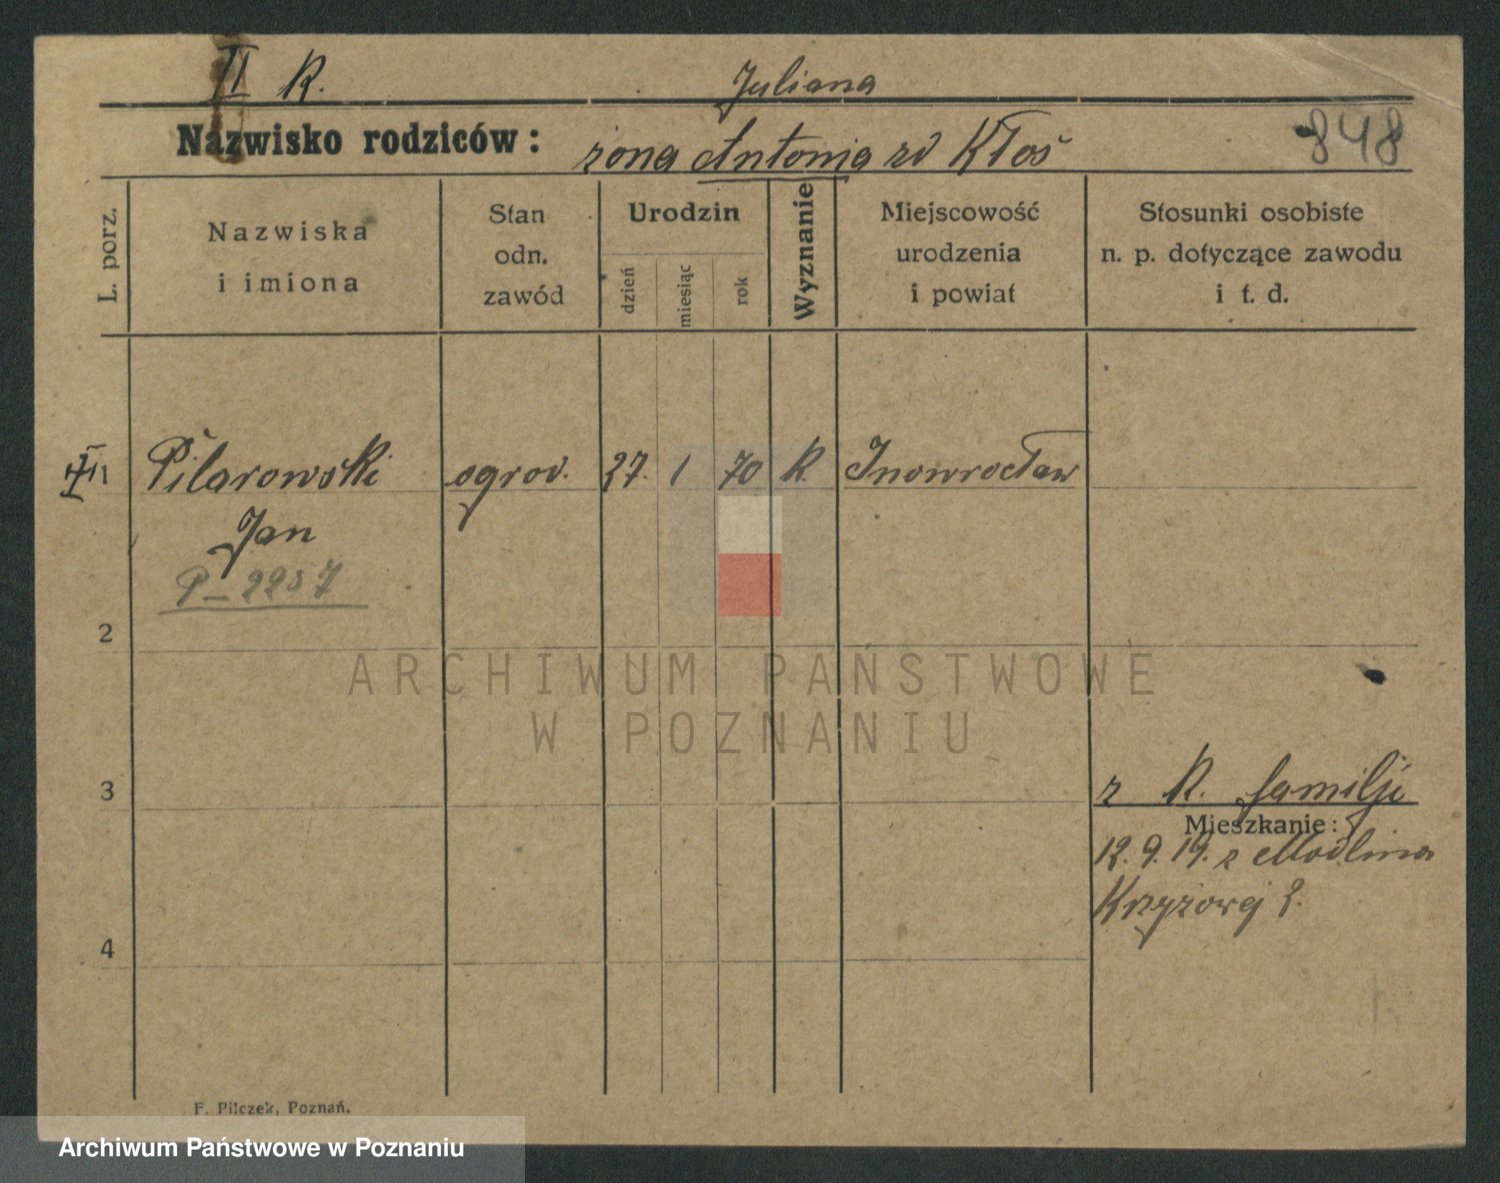 II K. Juliana
Nazwisko rodziców: żona Antonia zd Kłoś 848
L. porz.
Nazwiska
i imiona
Stan
odn.
zawód
Urodzin
dzień
miesiąc
rok
Wyznanie
Miejscowość
urodzenia
i powiat
Stosunki osobiste
n. p. dotyczące zawodu
i t. d.
Pilarowski ogrod. 27. 1 70 K. Inowrocław
Jan
P-2257
2
ARCHIWUM PAŃSTWOWE
W POZNANIU
3
z K. familji
Mieszkanie:
12.9.19. z Modlina
Krzyżowej 8.
4
F. Pilczek, Poznań.
Archiwum Państwowe w Poznaniu